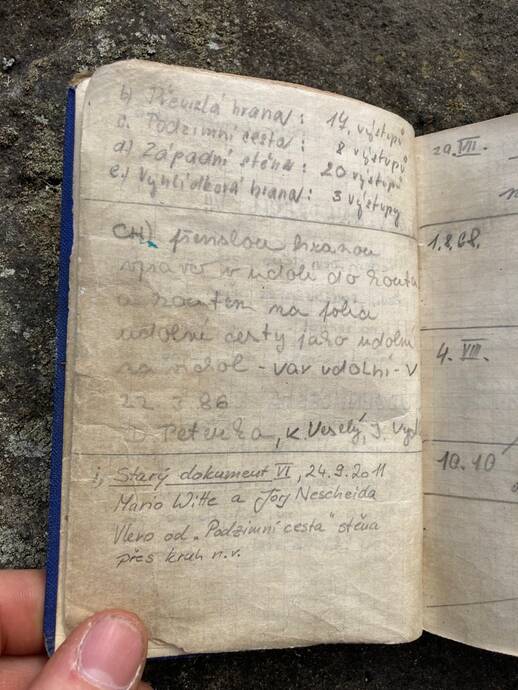 b) Převislá hrana: 17 výstupů
c. Podzimní cesta: 8 výstupů
d) Západní stěna: 20 výstupů
e.) Vyhlídková hrana: 3 výstupy
CH) hranou
vpravo v údolí do
a koutem na
údolní cesty jako údolní
na - var údolní - V
22 3 86
Peterka, K. Veselý, J.
i, Starý dokument VI, 24.9.2011
Mario Witte a Jörg Nescheida
Vlevo od „Podzimní cesta" stěna
přes kruh n.v.
29. VII.
1.8.68.
4. VIII.
10.10